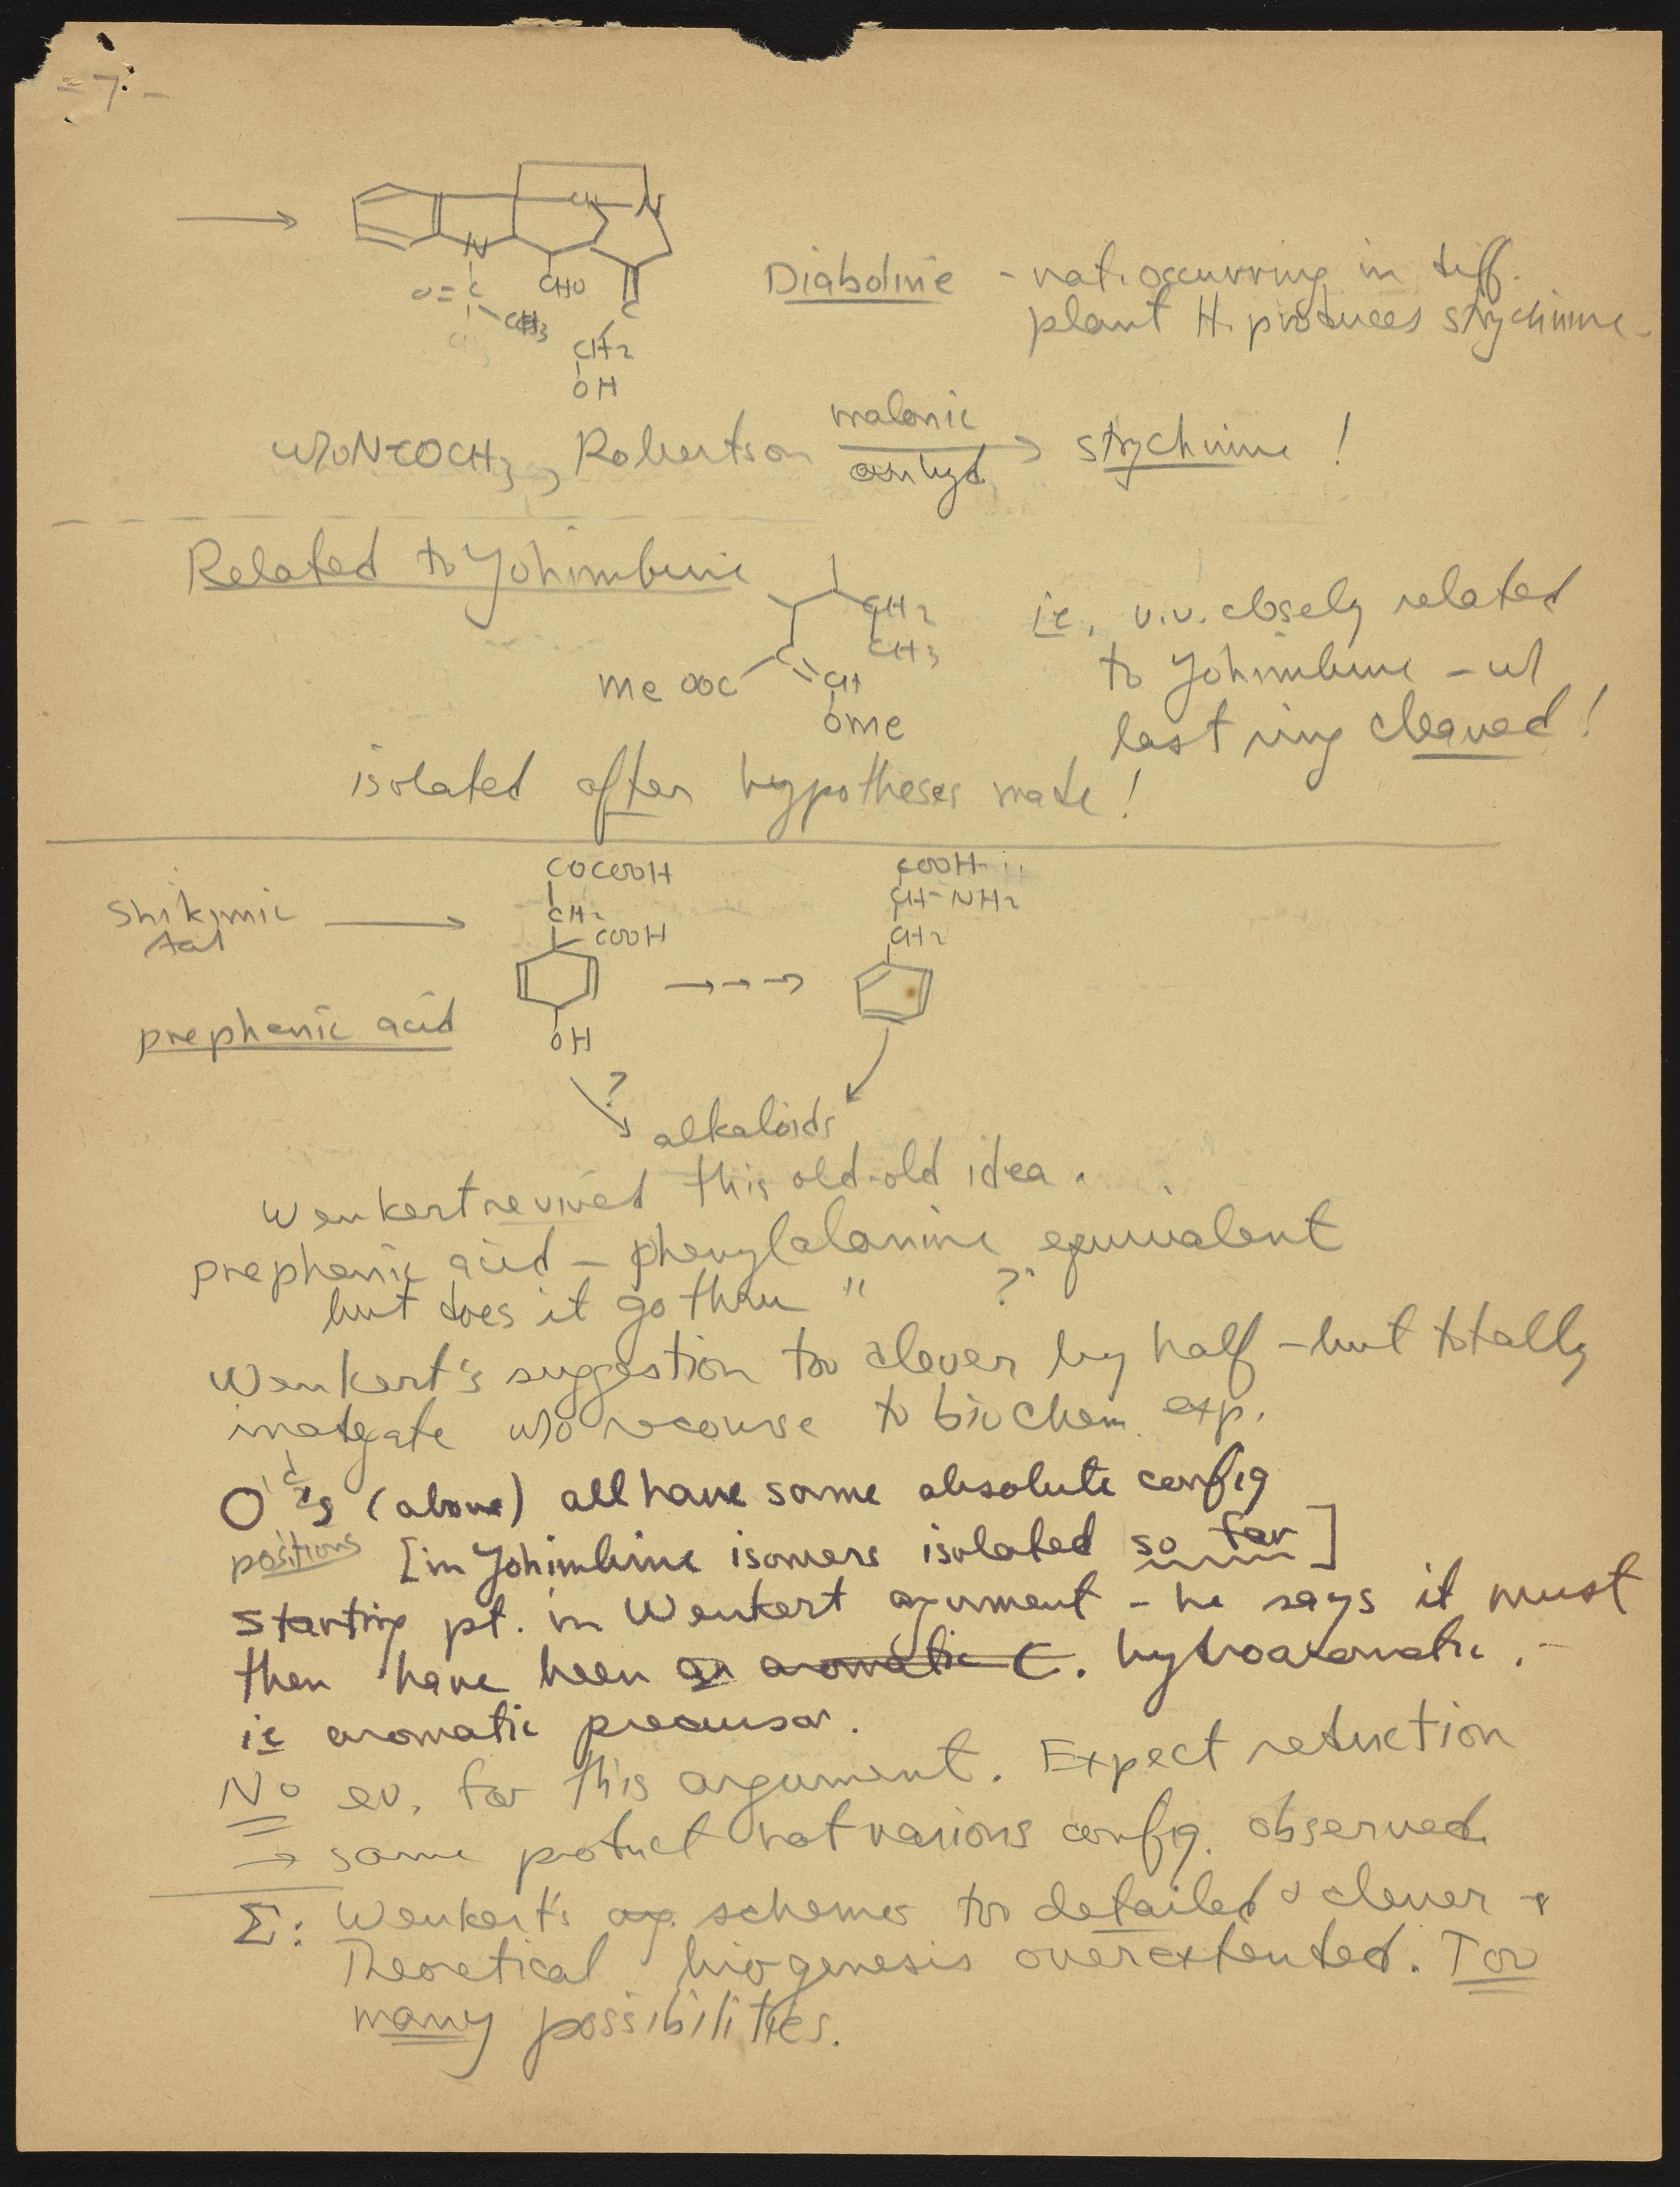 - 7 -
CH
N
N
CHO
O=C
CH3
C
CH2
OH
Diaboline - nat. occurring in diff.
plant H. produces strychnine.
w/o N-COCH3, Robertson malonic anhyd → strychnine!
Related to Yohimbine
CH2
CH3
C
MeOOC
CH
OMe
ie. v.v. closely related
to Yohimbine - w/
last ring cleaved!
isolated after hypotheses made!
Shikimic
prephenic acid
COCOOH
CH2
COOH
OH
COOH
CH-NH2
CH2
?
alkaloids
Wenkert revived this old-old idea.
prephenic acid - phenylalanine equivalent
but does it go thru " ?
Wenkert's suggestion too clever by half - but totally
w/o recourse to biochem. exp.
O'd 's (above) all have same absolute config
positions [in Yohimbine isomers isolated so far]
starting pt. in Wenkert argument - he says it must
then have been an aromatic C. hydroaromatic.
ie aromatic precursor.
No ev. for this argument. Expect reduction
→ same product not various config. observed.
Σ: Wenkert's schemes too detailed & clever &
Theoretical biogenesis overextended. Too
many possibilities.